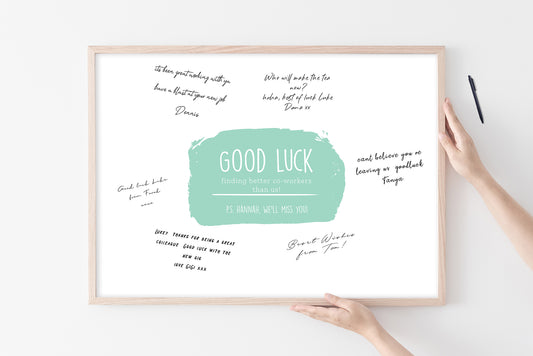 its been great working with ya
have a blast at your new job
Dennis
Who will make the tea
now?
haha, best of luck Luke
Dana xx
GOOD LUCK
finding better co-workers
than us!
P.S. HANNAH, WE'LL MISS YOU!
cant believe you re
leaving us goodluck
Tanya
Good luck Luke
from Fred
xxx
Lukey thanks for being a great
colleague Good luck with the
new gig
love Gigi xxx
Best Wishes
from Tom!